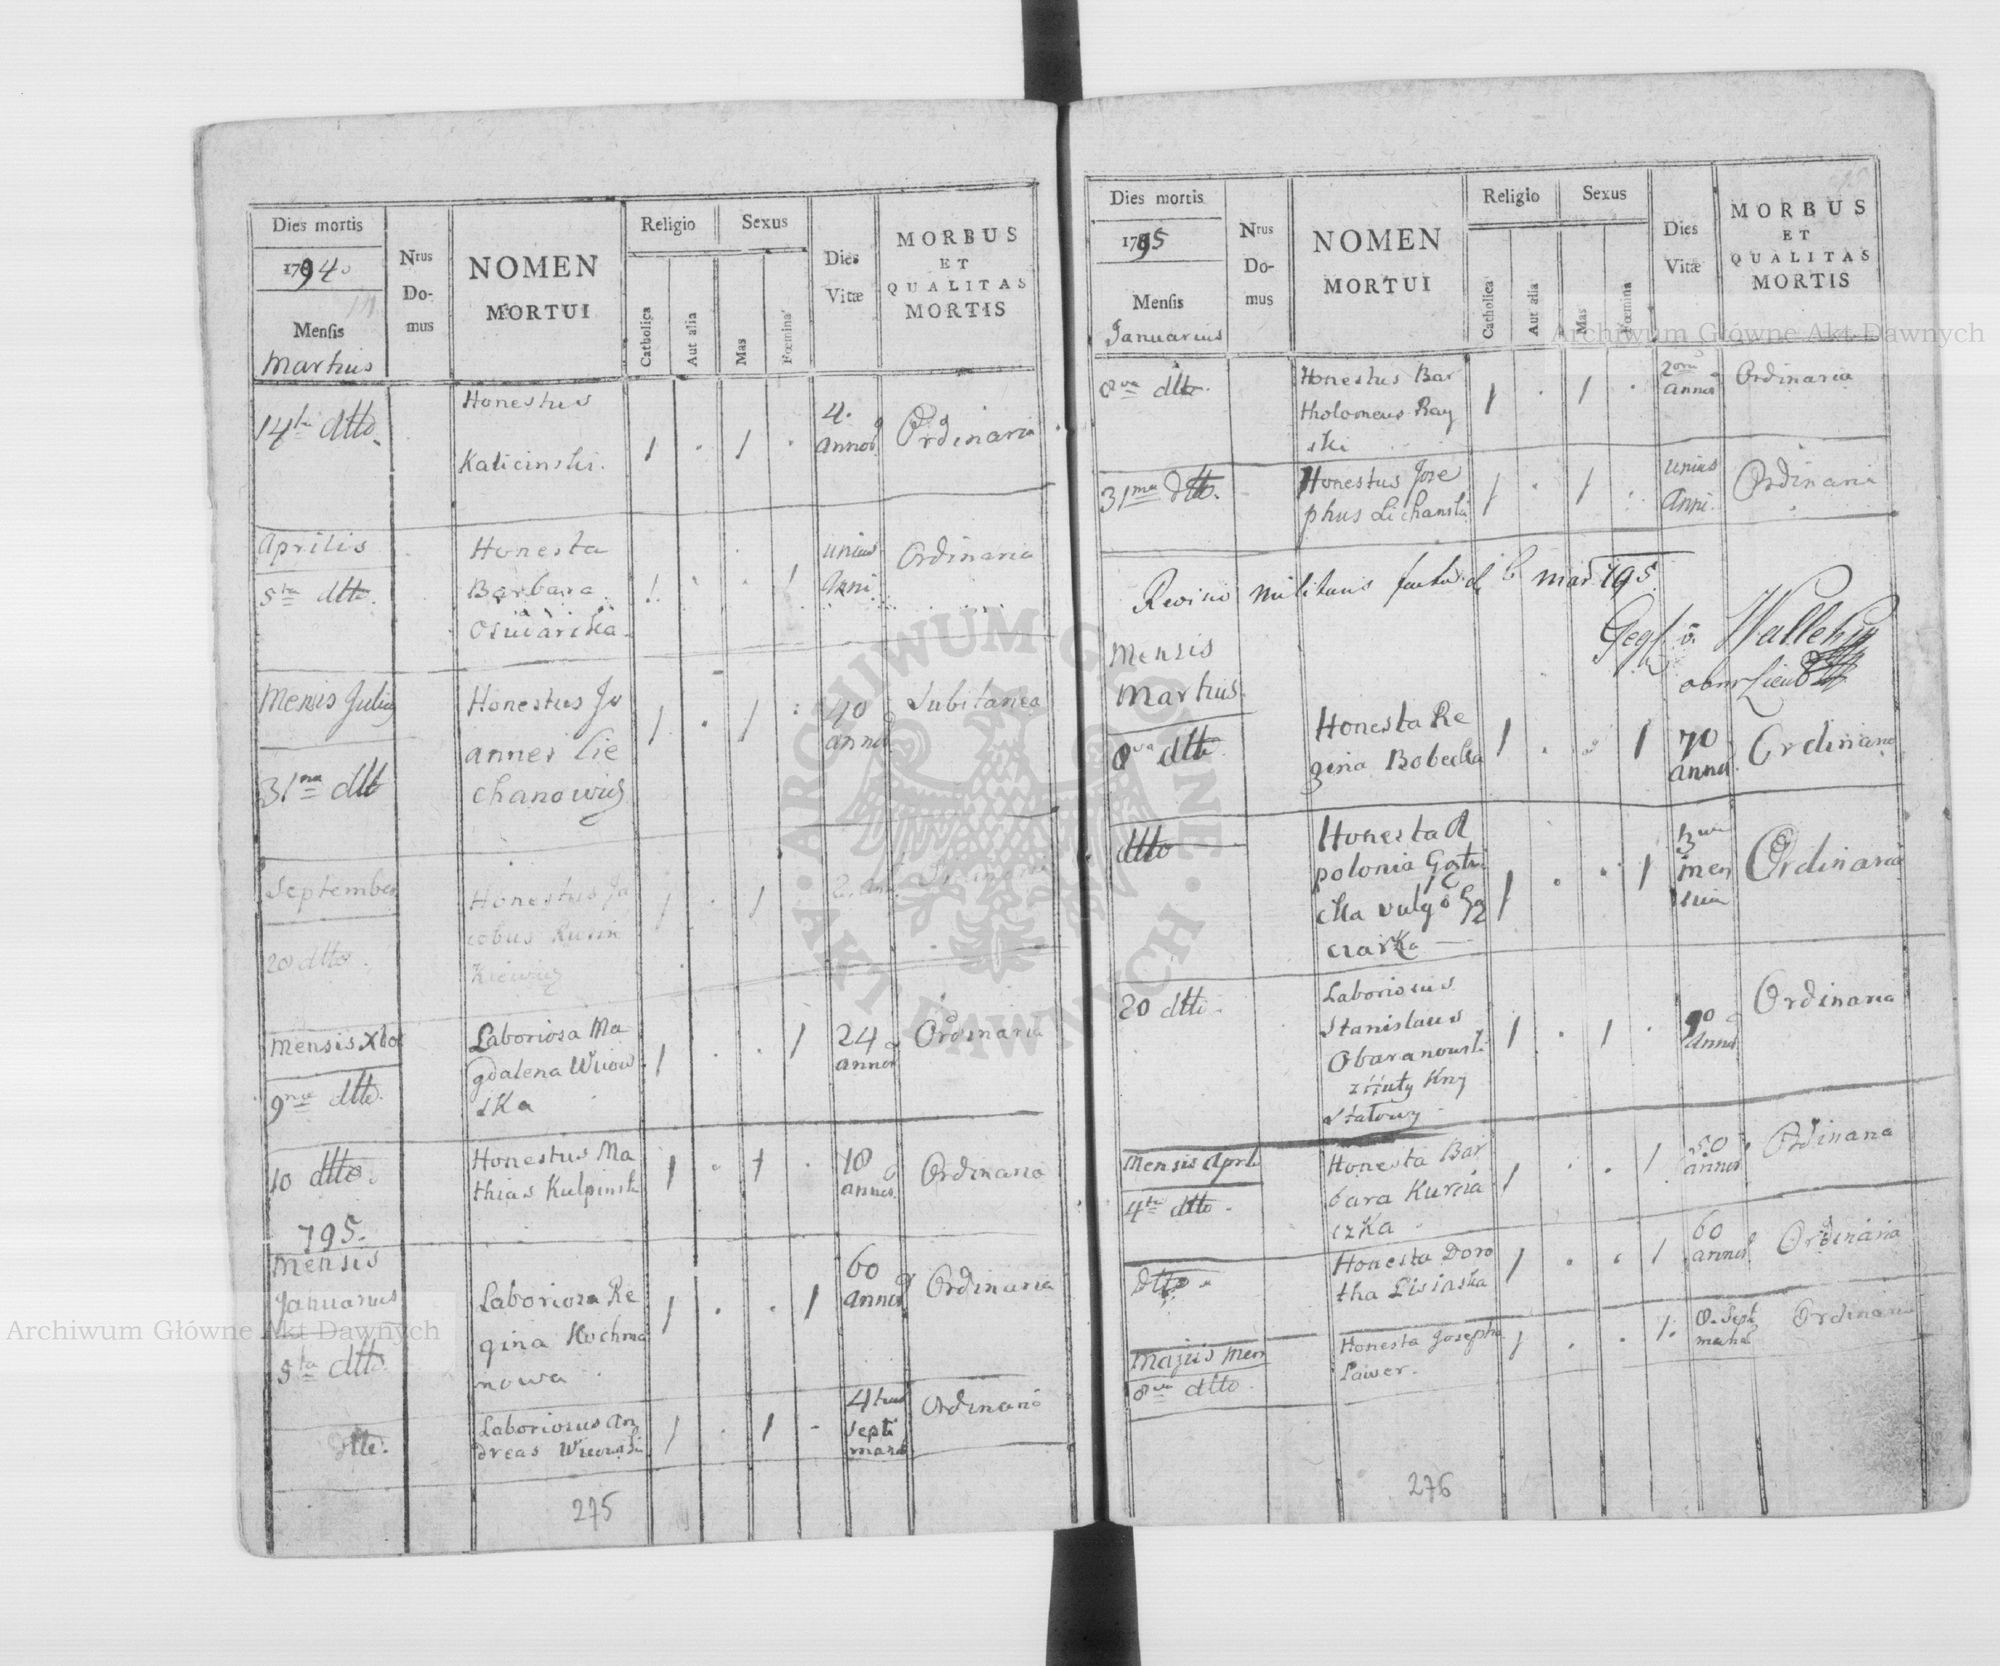 Dies mortis
1794.
Mensis
Martius
Nrus
Do-
mus
NOMEN
MORTUI
Religio
Catholica
Aut alia
Sexus
Mas
Fœmina
Dies
Vitæ
MORBUS
ET
QUALITAS
MORTIS
14ta dtto.
Honestus
Kalicinski.
1 . 1 .
4.
annor
Ordinaria
Aprilis
5ta dtto.
Honesta
Barbara
1 . . 1
unius
Anni
Ordinaria
Mensis Julius
31ma dtto
Honestus Jo
annes Cie
chanowicz
1 . 1 .
40
annor
Subitanea
September
20 dtto.
Honestus Ja
cobus
kiewicz
1 . 1
2. ann
Mensis Xbor
9na dtto.
Laboriosa Ma
gdalena Wiiow
ska
1 . . 1
24
annor
Ordinaria
10 dtto.
Honestus Ma
thias Kulpinski
1 . 1 .
18
annor
Ordinaria
795.
Mensis
Januarius
5ta dtto.
Laboriosa Re
gina Kochma
nowa
1 . . 1
60
annor
Ordinaria
dtto.
Laboriosus An
dreas
1 . 1 .
4
septi
man
Ordinaria
275
Dies mortis
1795
Mensis
Januarius
Nrus
Do-
mus
NOMEN
MORTUI
Religio
Catholica
Aut alia
Sexus
Mas
Fœmina
Dies
Vitæ
MORBUS
ET
QUALITAS
MORTIS
8va dtto.
Honestus Bar
tholomeus Ray
ski
1 . 1 .
2orum
annor
Ordinaria
31ma dtto.
Honestus Jose
phus Lichanski
1 . 1 .
unius
Anni.
Ordinaria
Revisio militaris facta d. 6 mar. 795.
Mensis
Martius.
8va dtto.
Honesta Re
gina Bobecka
1 . . 1
70
annor
Ordinaria
dtto
Honesta A
polonia
cka vulgo
czarka
1 . . 1
3um
men
sium
Ordinaria
20 dtto.
Laboriosus
Stanislaus
Obaranowski
1 . 1 .
90
annor
Ordinaria
Mensis Aprl.
4ta dtto.
Honesta Bar
bara Kurcia
czka
1 . . 1
50
annor
Ordinaria
dtto
Honesta Doro
tha Lisinska
1 . . 1
60
annor
Ordinaria
Majus Men
8va dtto.
Honesta Josepha
Pawer.
1 . . 1.
8. Sept
manar
Ordinaria
276
Archiwum Główne Akt Dawnych
Archiwum Główne Akt Dawnych
ARCHIWUM GŁÓWNE AKT DAWNYCH